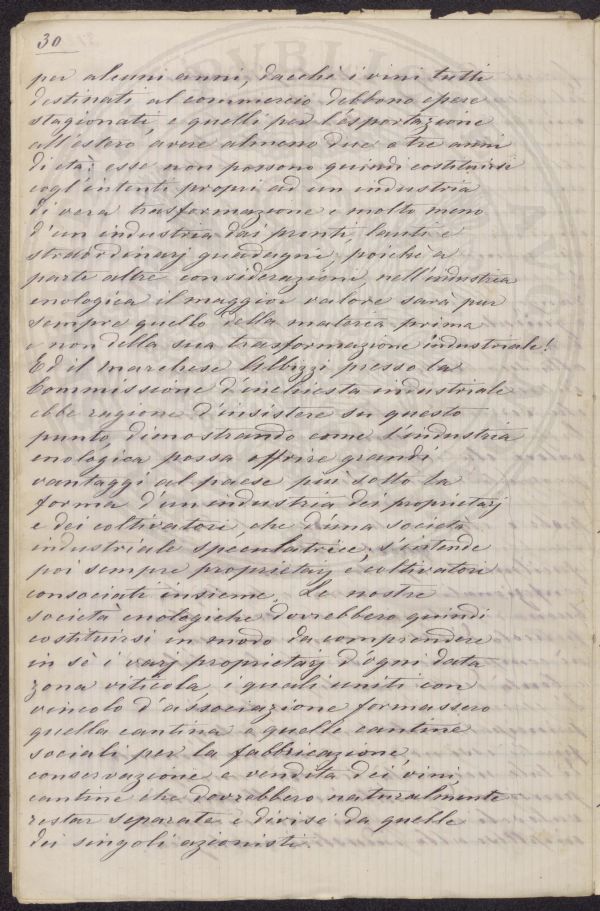 30
per alcuni anni, dacchè i vini tutti
destinati al commercio debbono essere
stagionati, e quelli per l'esportazione
all'estero avere almeno due o tre anni
di età: esse non possono quindi costituirsi
cogl'intenti propri ad un industria
di vera trasformazione e molto meno
d'un industria dai pronti, lauti e
straordinarj guadagni, poichè a
parte altre considerazioni nell'industria
enologica il maggior valore sarà pur
sempre quello della materia prima
e non della sua trasformazione industriale!
Ed il marchese Albizzi presso la
Commissione d'inchiesta industriale
ebbe ragione d'insistere su questo
punto, dimostrando come l'industria
enologica possa offrire grandi
vantaggi al paese più sotto la
forma d'un industria dei proprietarj
e dei coltivatori, che d'una società
industriale speculatrice; s'intende
poi sempre proprietarj e coltivatori
consociati insieme. Le nostre
società enologiche dovrebbero quindi
costituirsi in modo da comprendere
in sè i varj proprietarj d'ogni data
zona viticola, i quali uniti con
vincolo d'associazione formassero
quella cantina o quelle cantine
sociali per la fabbricazione,
conservazione e vendita dei vini,
cantine che dovrebbero naturalmente
restar separate e divise da quelle
dei singoli azionisti.